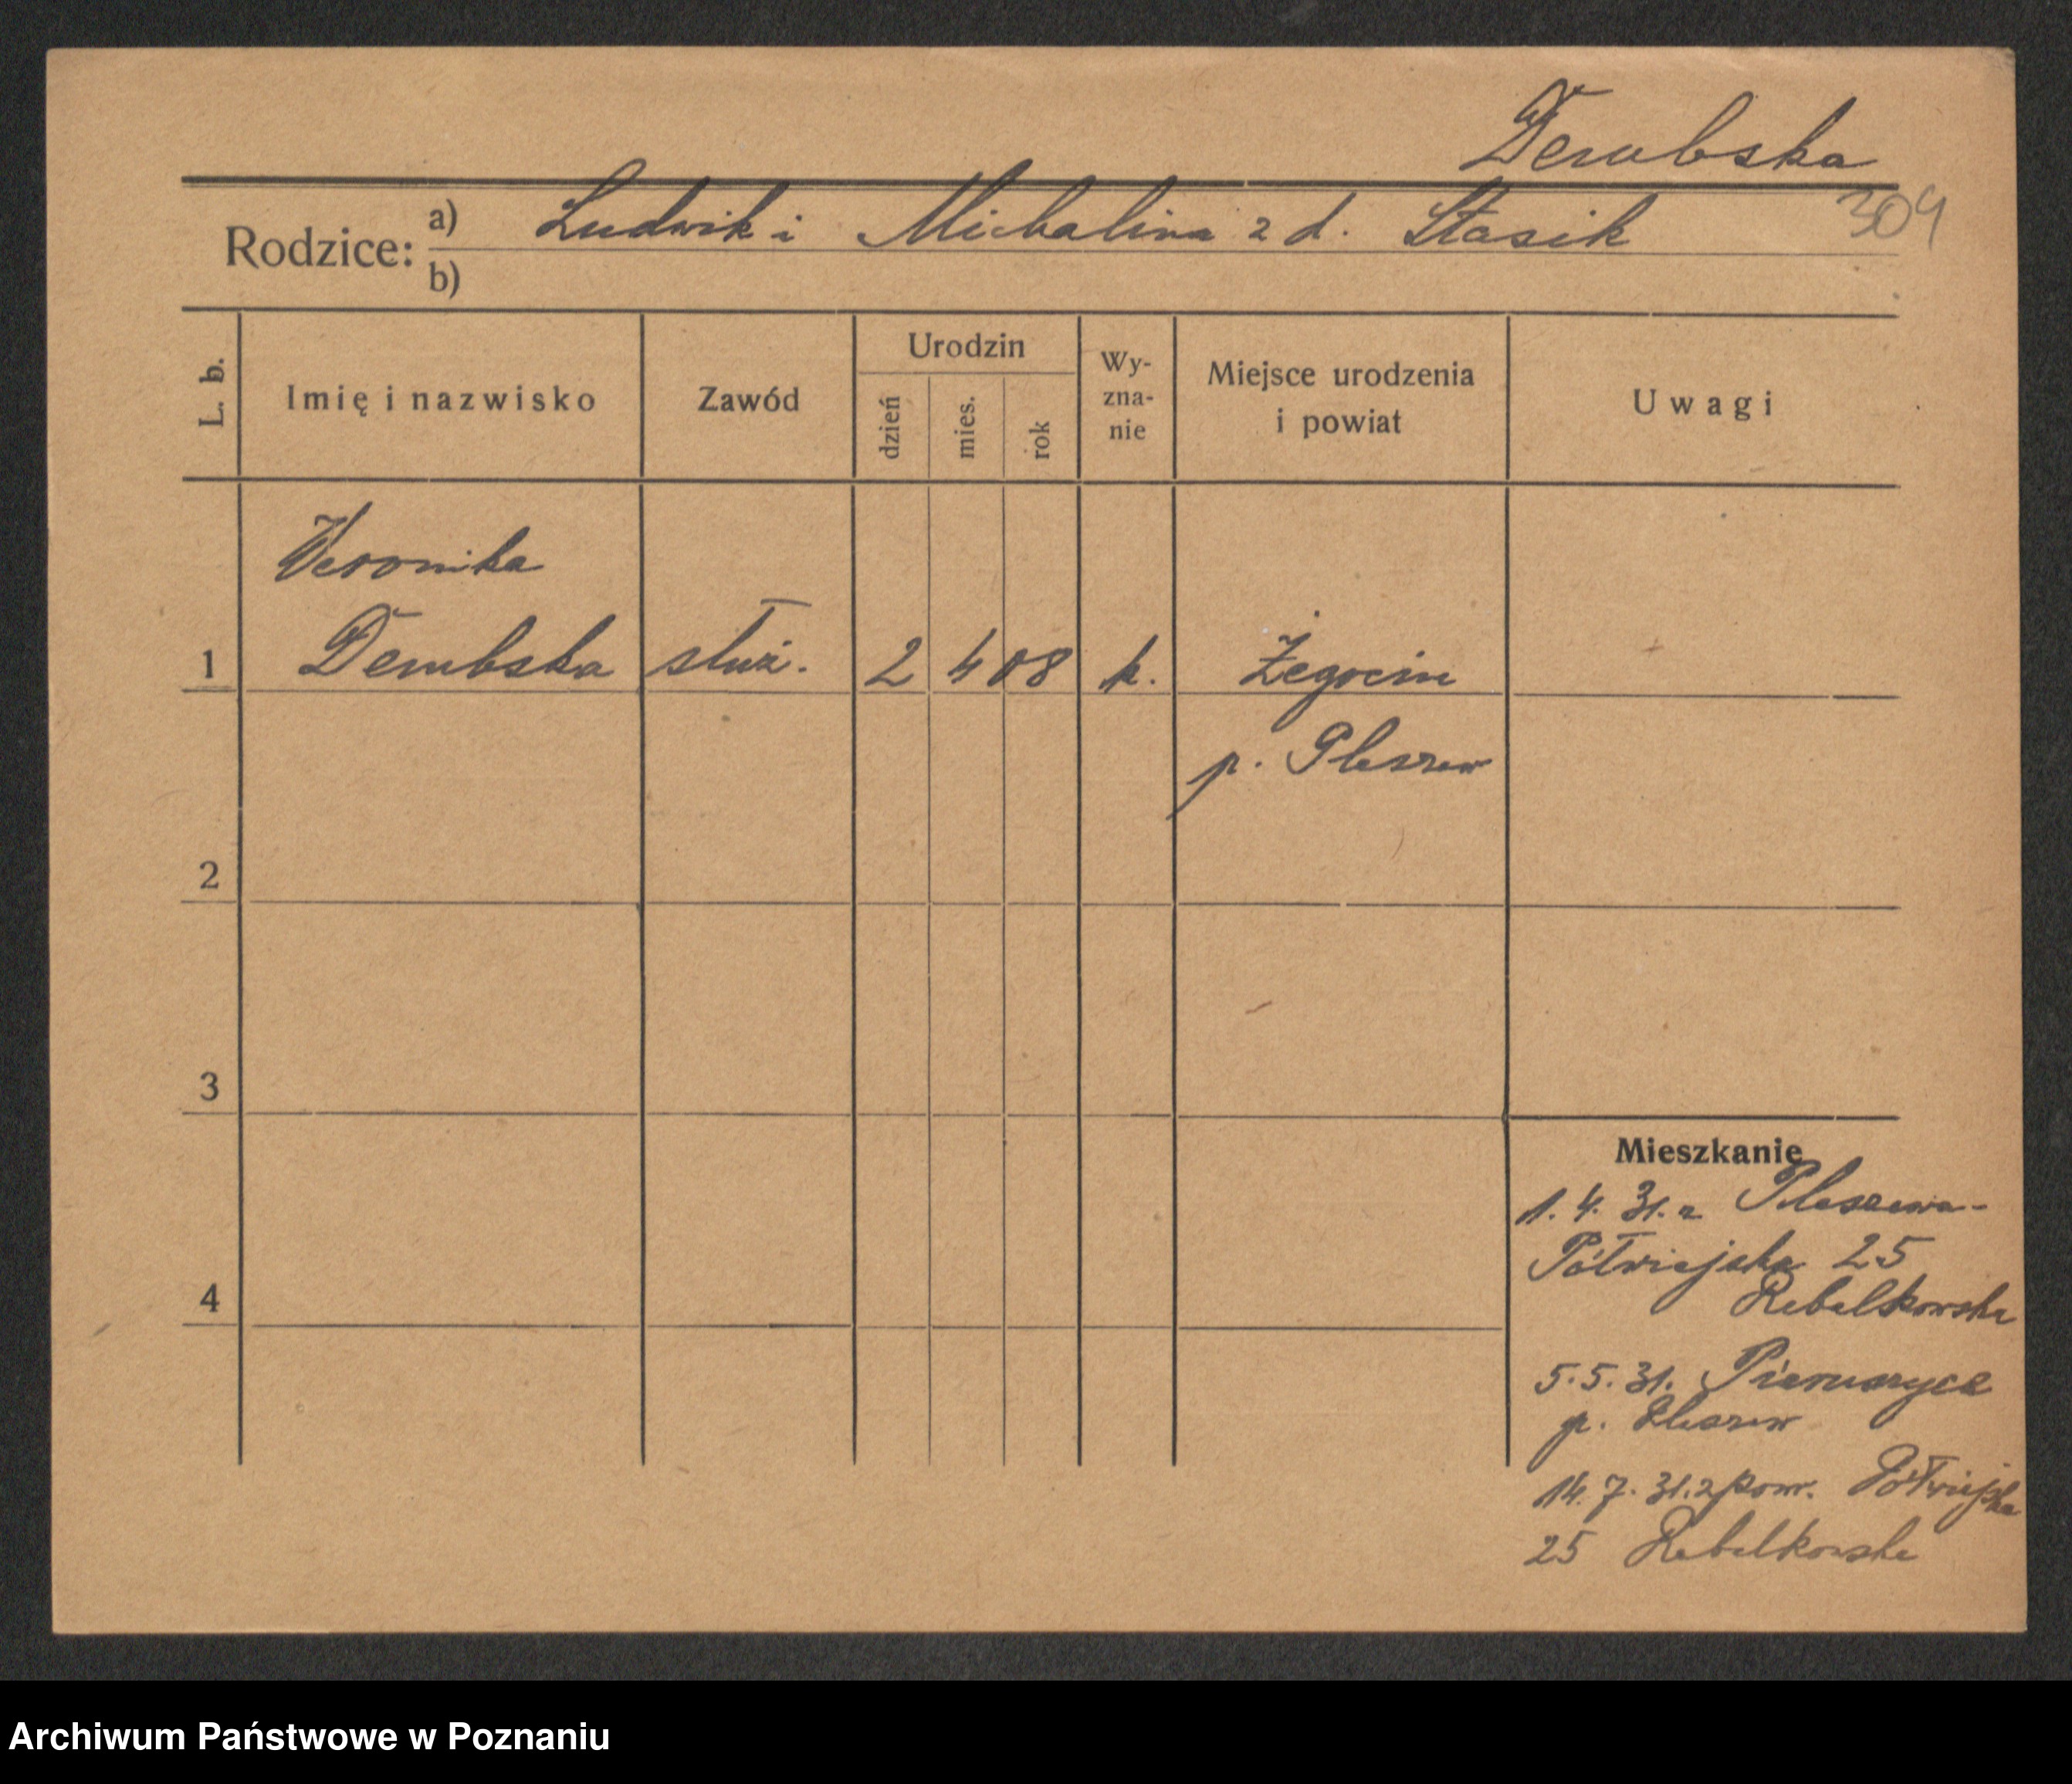 Dembska
304
Rodzice: a) Ludwik i Michalina z d. Stasik
b)
L. b.
Imię i nazwisko
Zawód
Urodzin
dzień
mies.
rok
Wy-
zna-
nie
Miejsce urodzenia
i powiat
Uwagi
Veronika
1 Dembska służ. 2 4 08 k. Żegocin
p. Pleszew
2
3
4
Mieszkanie
1. 4. 31. z Pleszewa-
Półwiejska 25
Rebelkowska
5. 5. 31.
p. Pleszew
14. 7. 31. z pow. Półwiejska
25 Rebelkowska
Archiwum Państwowe w Poznaniu